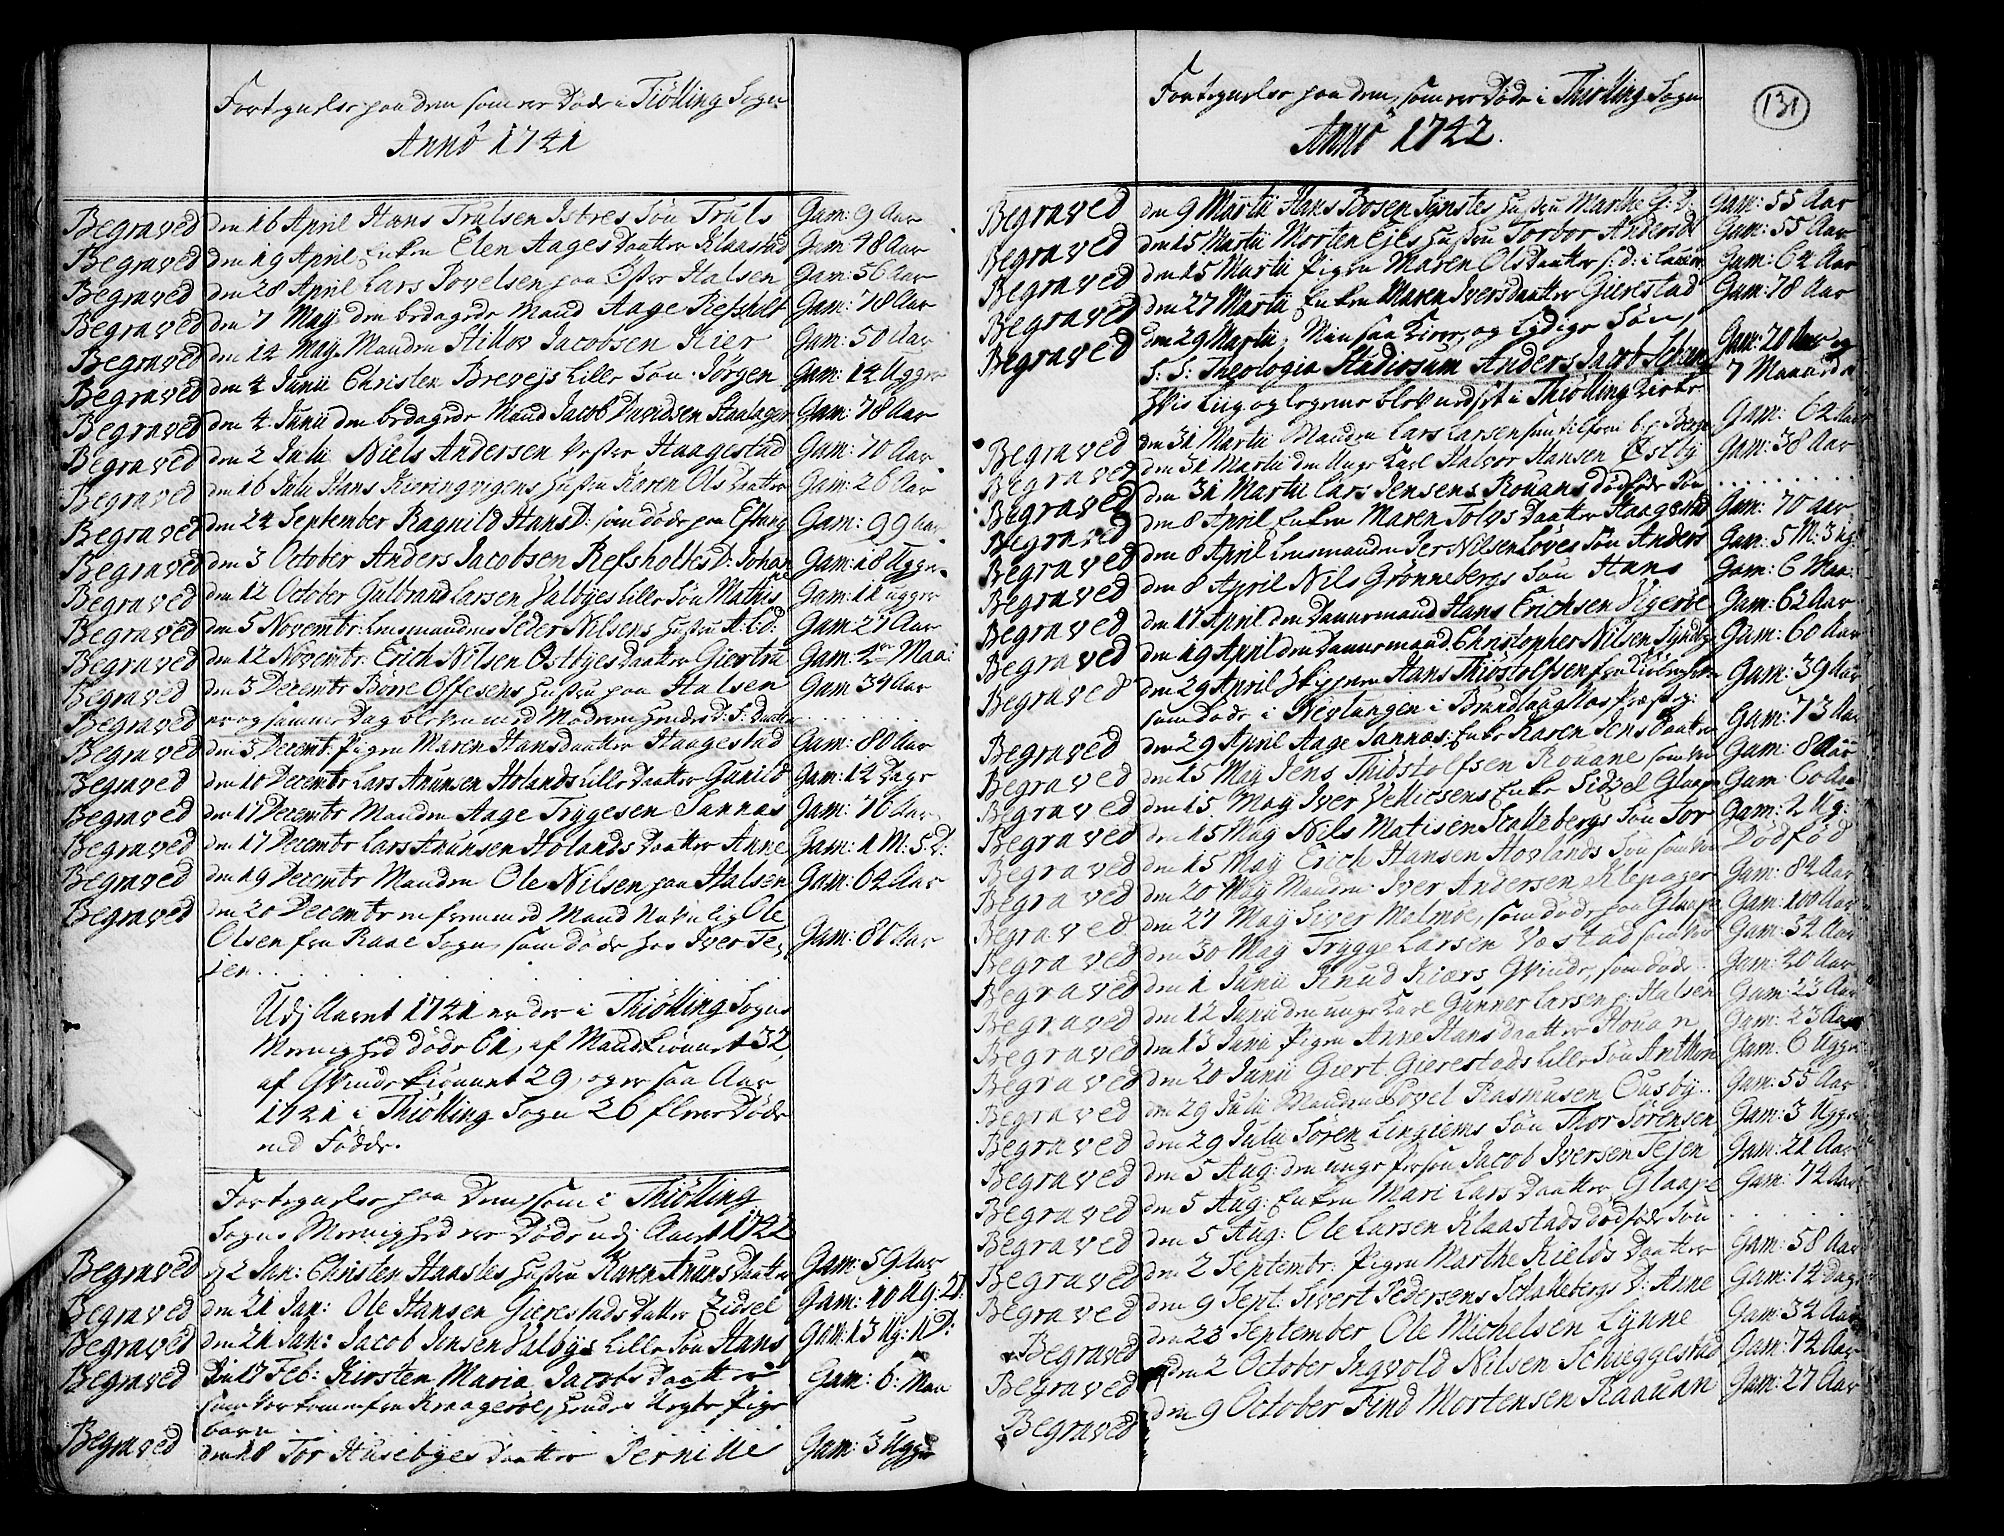 Fortegnelse paa dem som ere Døde i Tiølling Sogn
Anno 1741
Begraved den 16 April Hans Trulsen Istres Søn Truls Gam: 9 Aar
Begraved den 19 April Enken Elen Aages Daatter Klaastad Gam 48 Aar
Begraved den 28 April Lars Povelsen paa Øster Halsen Gam: 56 Aar
Begraved den 7 May den bedagede Mand Aage Refsholt Gam: 78 Aar
Begraved den 14 May Manden Hillov Jacobsen Kier Gam: 50 Aar
Begraved den 4 Junii Christen Brevejs Lille Søn Jørgen Gam: 14 Ugger
Begraved den 4 Junii den bedagede Mand Jacob Davidsen Gam: 78 Aar
Begraved den 2 Julii Niels Andersen Vester Haagestad Gam: 70 Aar
Begraved den 16 Julii Hans Kieringvigens Hustru Karen Ols Daatter Gam: 26 Aar
Begraved den 24 September Ragnild Hans D: som døde paa Eftang Gam: 99 Aar
Begraved den 3 October Anders Jacobsen Refsholtes D: Johanne Gam: 18 Ugger
Begraved den 12 October Gulbrand Larsen Valbyes Lille Søn Mathis Gam: 11 Ugger
Begraved den 5 Novembr: Lensmandens Peder Nilsens Hustru Gam 27 Aar
Begraved den 12 Novembr: Erich Nilsen Østbyes Daatter Giertru Gam: Maa:
Begraved den 3 Decembr Børre Offesens Hustru paa Halsen Gam 34 Aar
Begraved er og samme Dag bleven med Moderen hendes D: F: Daatter
Begraved den 3 Decemt: Pigen Maren Hansdaatter Haagestad Gam: 80 Aar
Begraved den 10 Decembr Lars Anunsen Holands Lille Daatter Gunild Gam: 12 Dage
Begraved den 17 Decembr Manden Aage Tryggesen Sannas Gam: 76 Aar
Begraved den 17 Decembr Lars Anunsen Holands Daatter Anne Gam: 1 M: 5 D:
Begraved den 19 Decembr Manden Ole Nilsen paa Halsen Gam: 64 Aar
Begraved den 20 Decembr en fremmed Mand Navnlig Ole
Olsen fra Rase Sogn, som døde hos Iver Te- Gam: 80 Aar
sen
Udj Aaret 1741 er der i Thiølling Sogns
Menighed døde 61, af Mandkiønnet 32,
af Qvindekiønnet 29, og er saa Aar
1741 i Thiølling Sogn 26 flere Døde
end Fødde.
Fortegnelse paa Dem, som i Thiølling
Sogns Menighed ere Døde udj Aaret 1742
Begraved d 2 Jan: Christen Haastes Hustru Karen Anuns Daatter Gam: 59 Aar
Begraved den 21 Jan: Ole Hansen Gierestads Datter Zidsel Gam: 10 Ug: 2 D:
Begraved den 21 Jan: Jacob Jensen Valbys Lille Søn Hans Gam: 13 Ug: 1 D:
Begraved Den 17 Feb: Kirsten Maria Jacobs Daatter Gam: 6: Maa
som var kommen fra Kraagerøe, hendes Uegte Pige
barn
Begraved den 18 Tor Husebyes Daatter Pernille Gam: 3 Ugger
131
Fortegnelse paa dem, som ere Døde i Thiølling Sogn
Anno 1742.
Begraved den 9 Martii Hans Bosen Synstes Hustru Marthe G: D: Gam: 55 Aar
Begraved den 15 Martii Morten Ejes Hustru Torbor Andersd Gam: 55 Aar
Begraved den 15 Martii Pigen Maren Ols Daatter Gam: 64 Aar
Begraved den 27 Martii Enken Maren Ivers Daatter Gierestad Gam: 78 Aar
Begraved den 29 Martii Min saa kiere, og lydige Søn, Gam: 20 Aar og
S: S: Theologiæ Studiosum Anders Jacob 7 Maaneder
hvis Liig og Legeme blev nedsat i Thiølling Kirke
Begraved den 31 Martii Manden Lars Larsen Gam: 64 Aar
Begraved den 31 Martii den Unge Karl Halvor Hansen Østby Gam: 38 Aar
Begraved den 31 Martii Lars Jensens Rouans Dødføde Søn
Begraved den 8 April Enken Maren Tolvs Daatter Haagestad Gam: 70 aar
Begraved den 8 April Lensmanden Per Nilsen Løves Søn Anders Gam: 5 M: 3 Ug:
Begraved den 8 April Nils Grønnebergs Søn Hans Gam: 6 Maa:
Begraved den 17 April den Dannemand Hans Erichsen Vigerøe Gam: 62 Aar
Begraved den 19 April den Dannemand Christopher Nilsen Gam: 60 Aar
Begraved den 29 April Skipperen Hans Thiøstolfsen fra Gam: 39 Aar
som døde i Nevlungen i Brundlaugnæs Præsteg:
Begraved den 29 April Aage Sannæs Enke Karen Jens Daatter Gam: 73 Aar
Begraved den 15 May Jens Thiøstolfsen Rouane Gam: 8 Aar
Begraved den 15 May Iver Vellicsens Enke Sidsel Glaape Gam: 60 Aar
Begraved den 15 May Nils Matisen Skallebergs Søn Tor Gam: 2 Ug:
Begraved den 15 May Erich Hansen Hovlands Søn som var Dødfød
Begraved den 20 May Manden Iver Andersen Klepager Gam: 84 Aar
Begraved den 27 May Siver Malmøe, som døde paa Glaape Gam: 100 Aar
Begraved den 30 May Trygge Larsen Væstad Gam: 34 Aar
Begraved den 1 Junii Knud Kiærs Qvinde, som døde Gam: 40 Aar
Begraved den 12 Junii den unge Karl Gunner Larsen p: Halsen Gam: 23 Aar
Begraved den 13 Junii Pigen Anne Hans Daatter Houan Gam: 23 Aar
Begraved den 20 Junii Giert Gierestads Lille Søn Anthon Gam: 6 Ugger
Begraved den 29 Julii Manden Povel Rasmusen Ousby Gam: 55 Aar
Begraved den 29 Julii Søren Lingiems Søn Thor Sørensen Gam: 3 Ugger
Begraved den 5 Aug: den unge Person Jacob Iversen Tesen Gam: 21 Aar
Begraved den 5 Aug: Enken Mari Lars Daatter Glaape Gam: 74 Aar
Begraved den 5 Aug: Ole Larsen Klaastads dødføde Søn
Begraved den 2 Septembr: Pigen Marthe Kields Daatter Gam: 58 Aar
Begraved den 9 Sept: Sivert Pedersens Schallebergs D: Anne Gam: 14 dage
Begraved den 23 September Ole Michelsen Lynne Gam: 34 Aar
Begraved den 2 October Ingvold Nilsen Schiggestad Gam: 74 Aar
Begraved den 9 October Find Mortensen Raauan Gam: 27 Aar